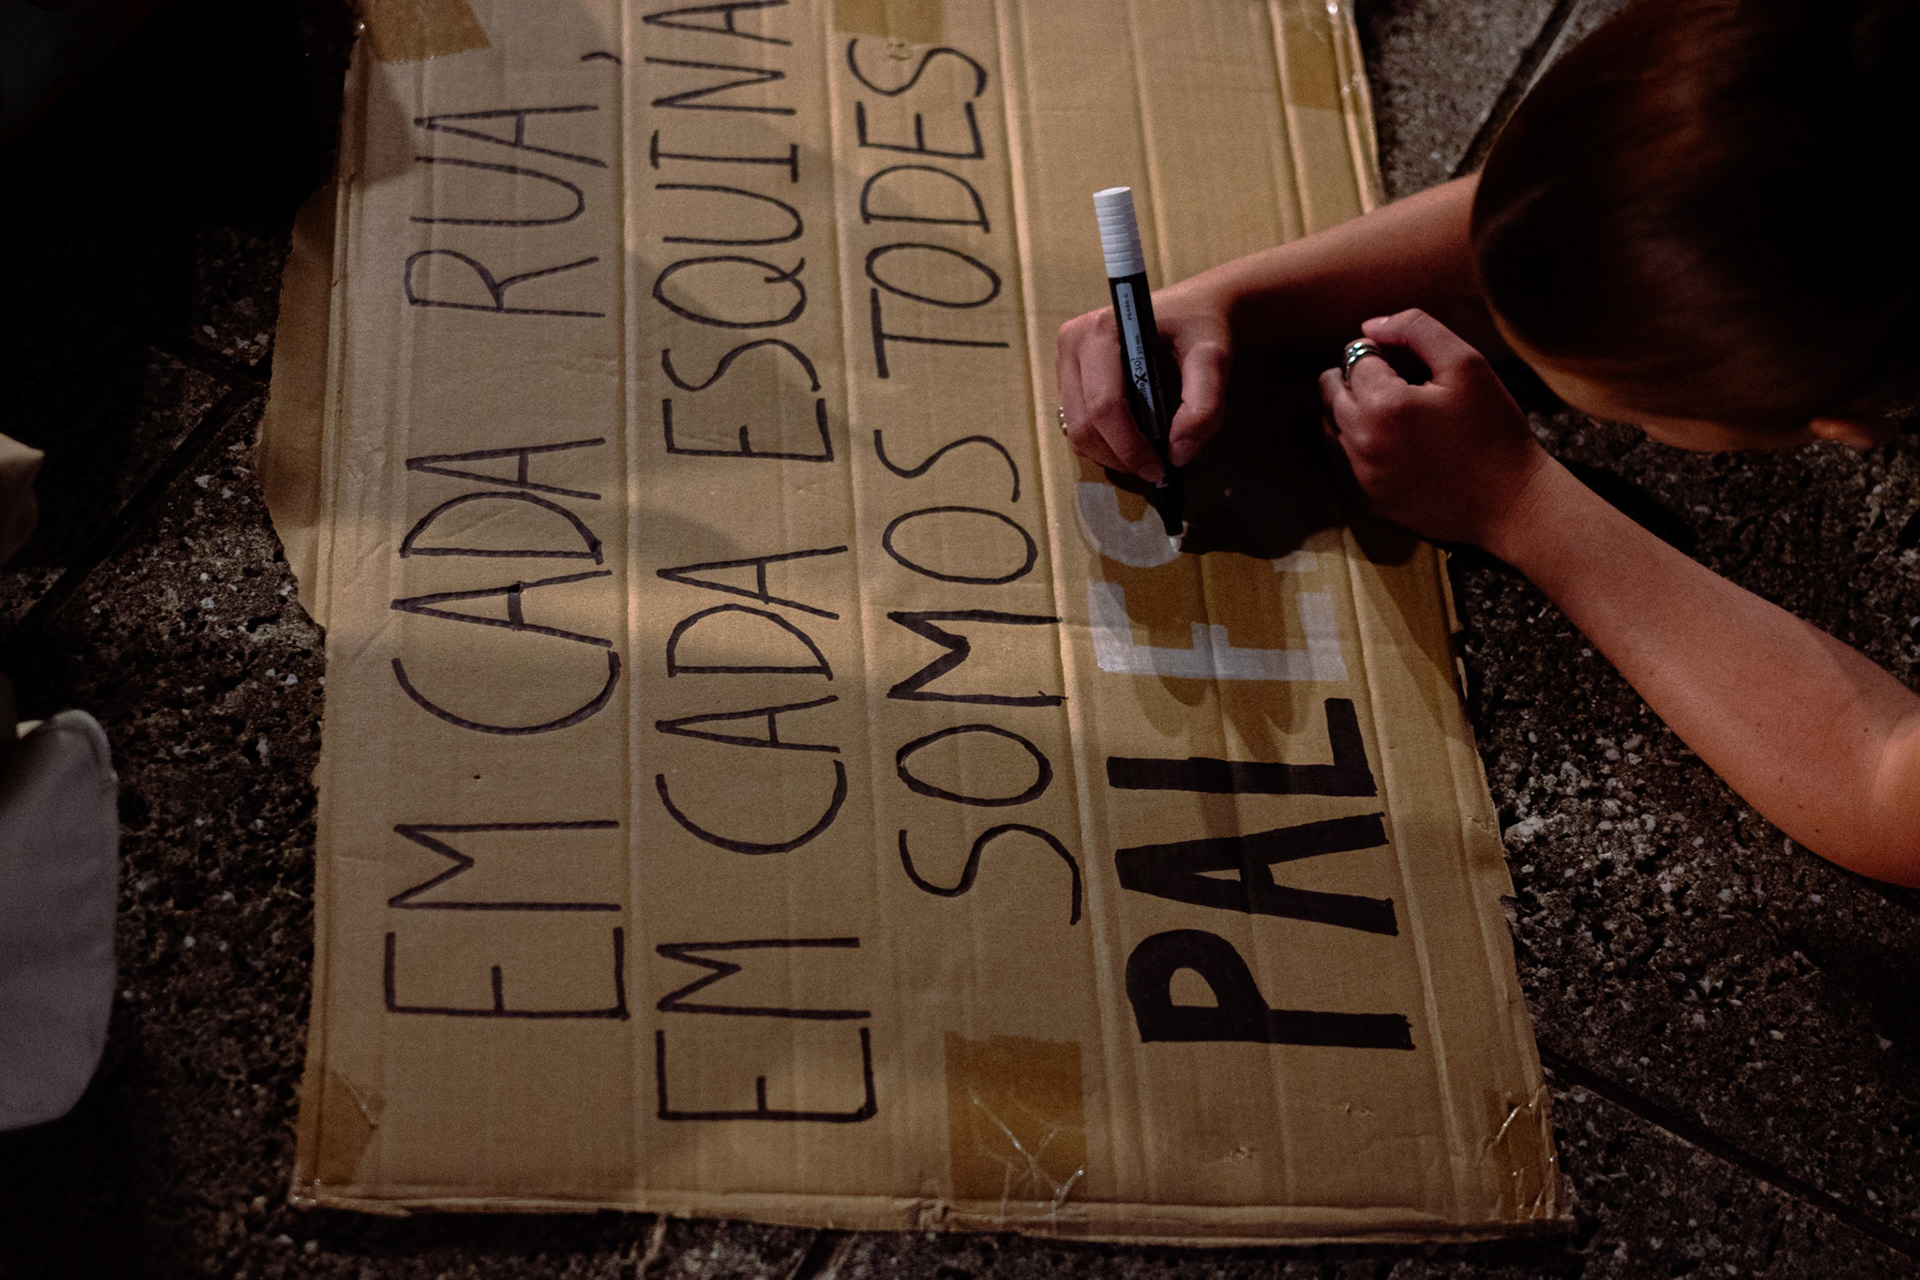 EM CADA RUA,
EM CADA ESQUINA
SOMOS TODES
PALES